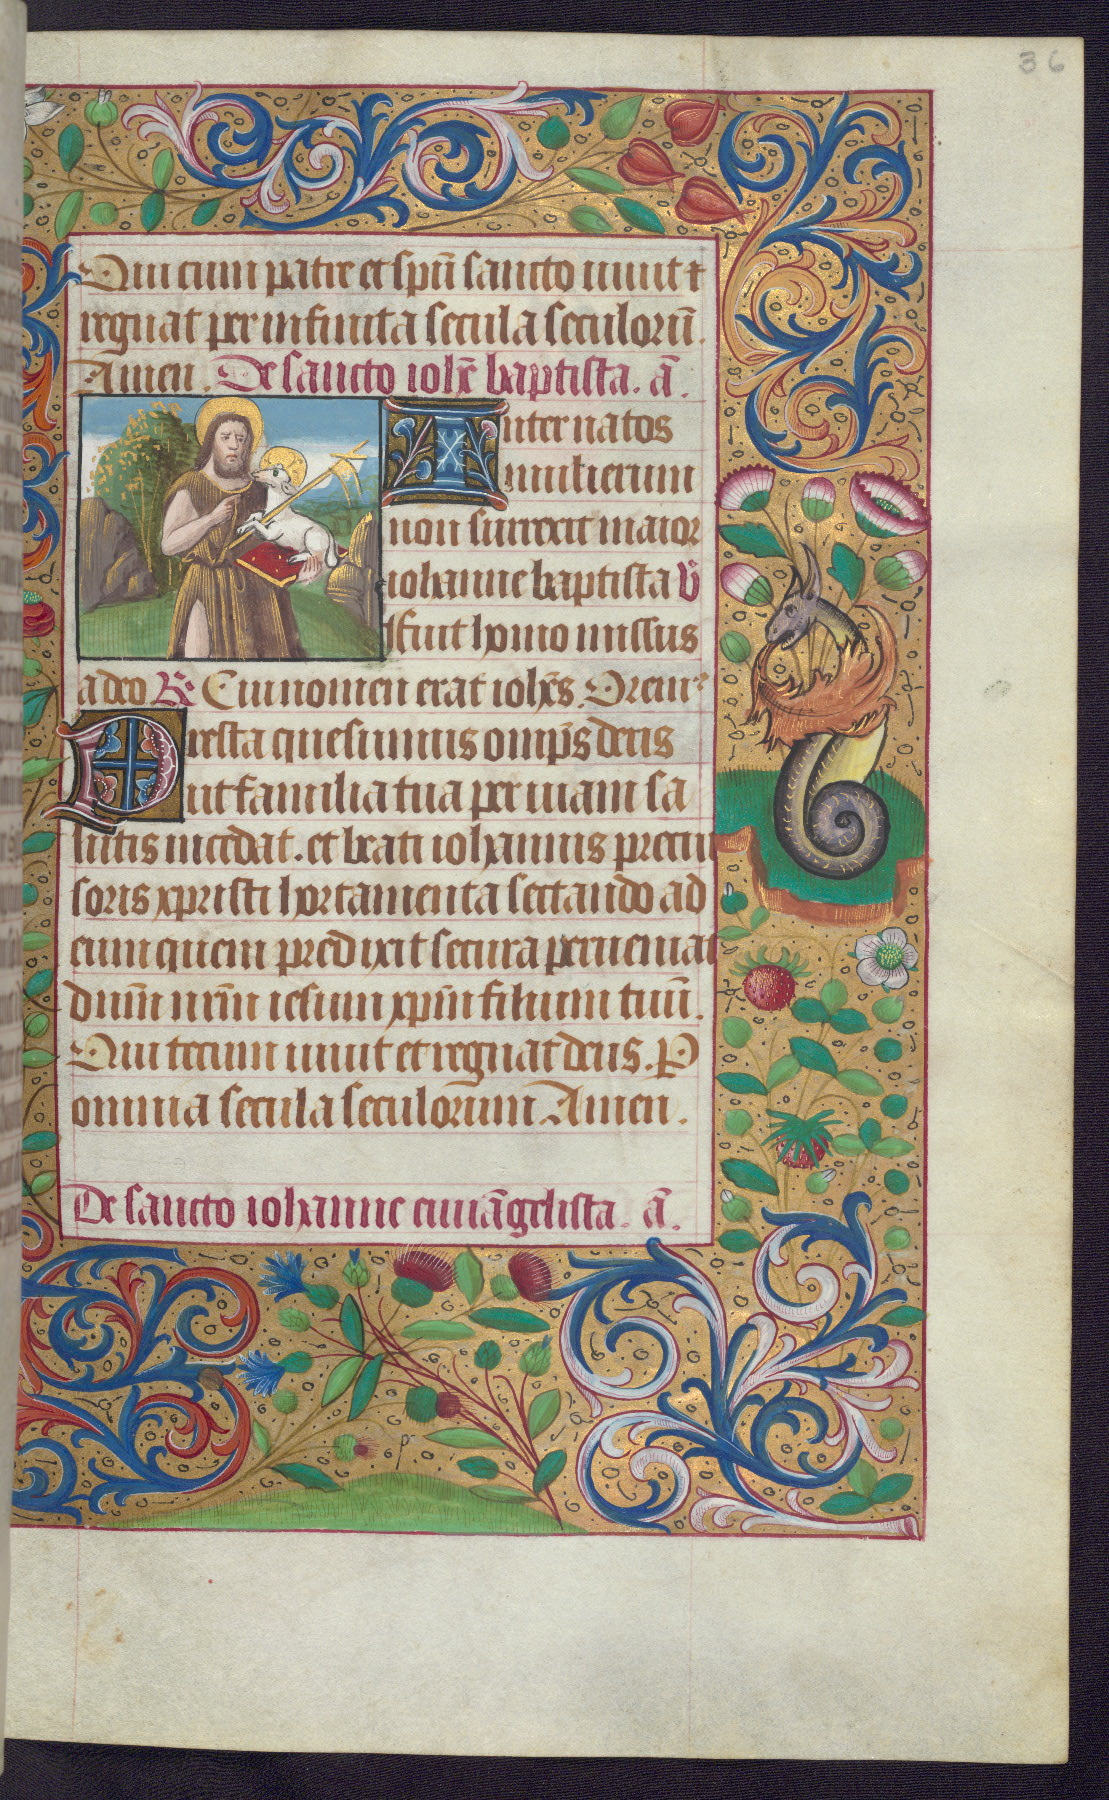 36
Qui cum patre et spū sancto uiuit et
regnat per infinita secula seculorū.
Amen. De sancto ioħe baptista. ā.
Inter natos
mulierum
non surrexit maior
iohanne baptista v̄
Fuit homo missus
a deo R̄ Cui nomen erat ioħes. Oremꝰ
Presta quesumus omps̄ deus
ut familia tua per uiam sa
lutis incedat. et beati iohannis precur
soris xpristi hortamenta sectando ad
eum quem predixit secura perueniat
dnūm nrm̄ iesum xpm̄ filium tuū.
Qui tecum uiuit et regnat deus. P
omnia secula seculorum Amen.
De sancto iohanne euuāgelista. ā.